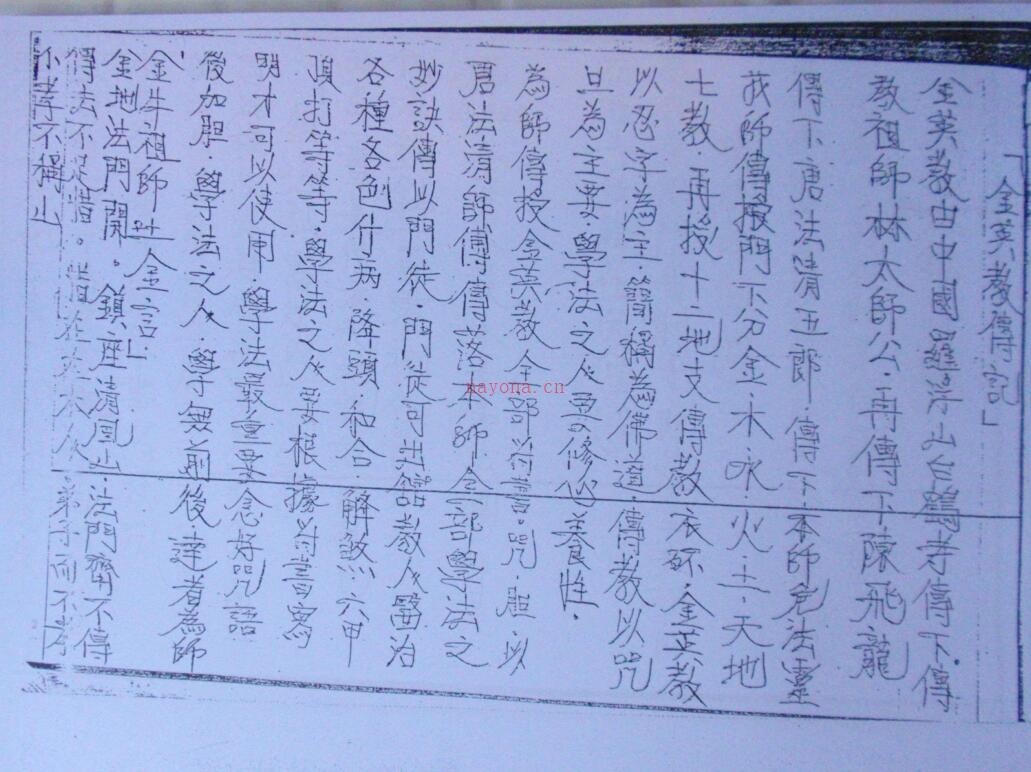 「金英教傳記」
金英教由中國羅浮山白鶴寺傳下.傳
教祖師林太師公.再傳下陳飛龍
傳下唐法清五郎.傳下本師允法靈
我師傳授門下分金.木.水.火.土.天地
七教.再授十二地支傳教 金英教
以忍字為主.簡稱為佛道.傳教以咒
為主要.學法之人要修心養性.
為師傳授金英教全部符書。咒.以
法清師傳傳落本師全部學法之
妙訣傳以門徒.門徒可出 教人醫治
各種各色什病.降頭.和合.解煞.六甲
打等等.學法之人要根據符書寫
明才可以使用學法最重要念好咒語
後加胆.學法之人.學無前後.達者為師
金牛祖師 金言.」
金地法門開。鎮座清風山.法門齊不傳
傳法不 。 弟子
不孝不稱
nayona.cn